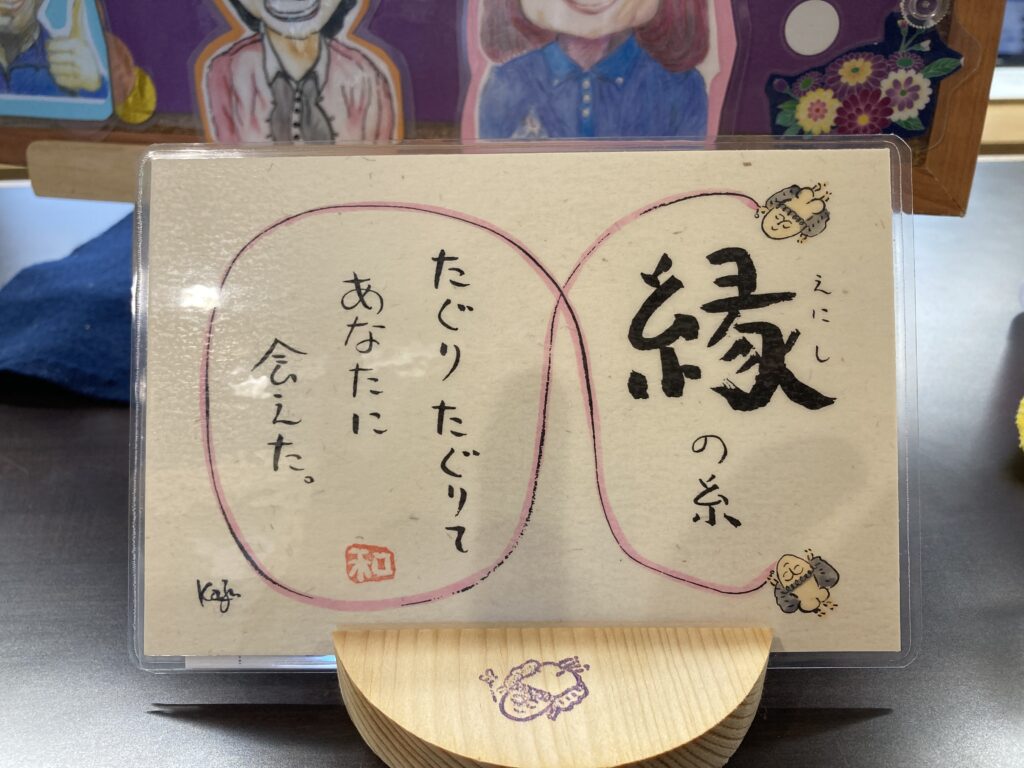 縁
えにし
の糸
たぐりたぐりて
あなたに
会えた。
和